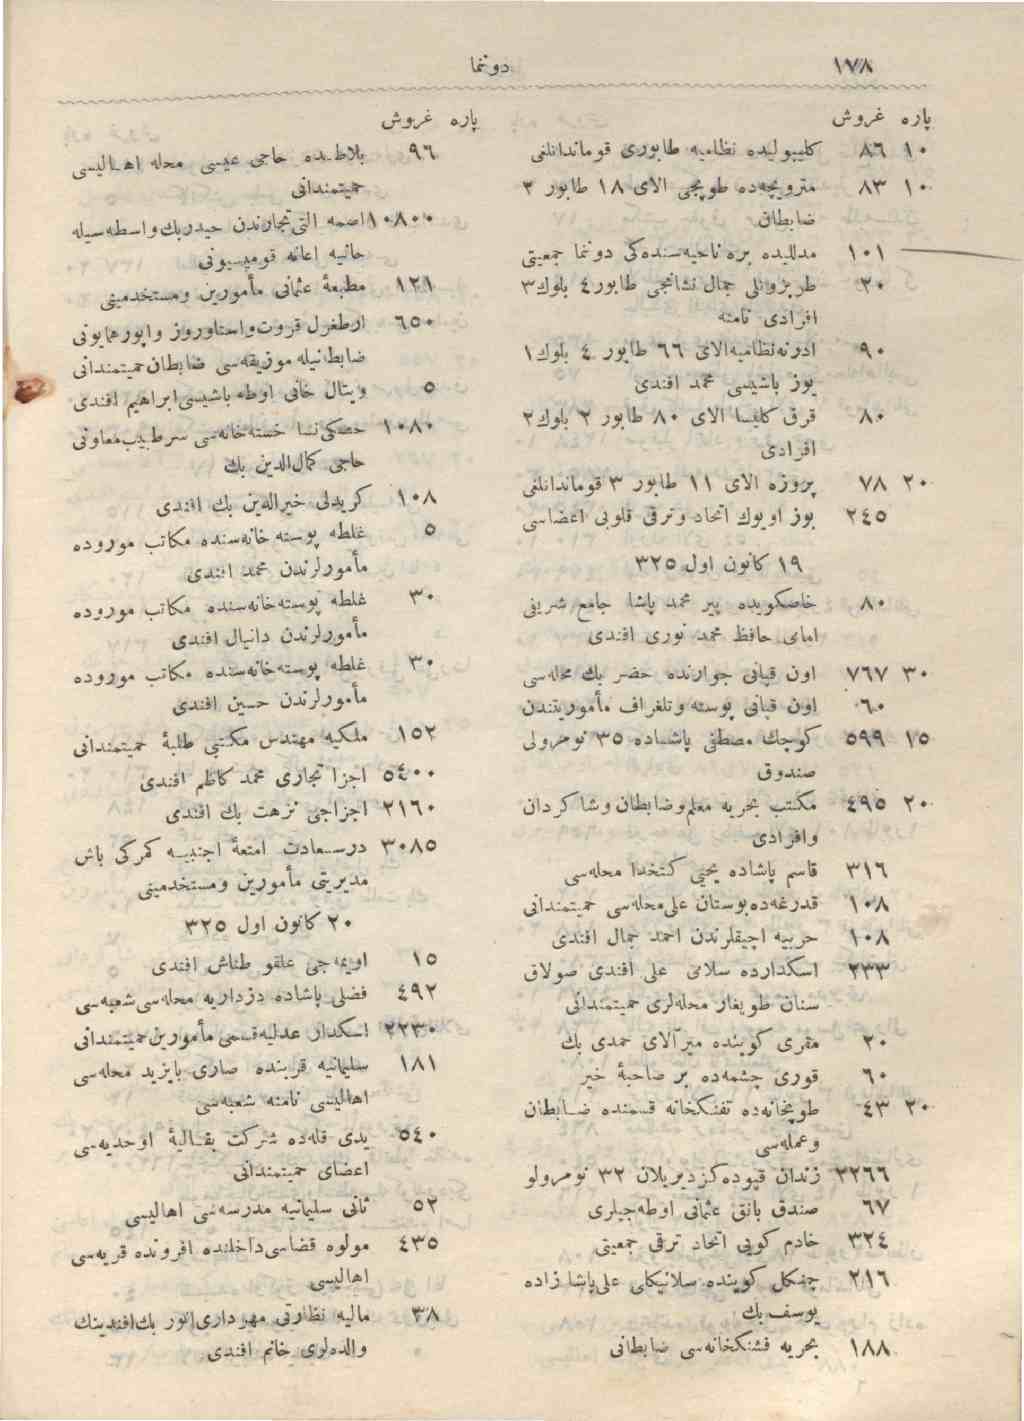 ١٧٨
دونما
پاره غروش
١٠ ٨٦ كليبوليده نظاميه طابورى قوماندانلغى
١٠ ٨٣ متروپچه‌ده طوپجى الاى ١٨ طابور ٢
ضابطان
١٠١ مدلليده بره ناحيه‌سنده‌كى دونما جمعيتى
٢٠ طربزونلى جمال نشانجى طابور ٤ بلوك ٣
افرادى نامنه
٩٠ ادرنه نظاميه الاى ٦٦ طابور ٤ بلوك ١
يوز باشيسى محمد افندى
٨٠ قرق كليسا الاى ٨٠ طابور ٢ بلوك ٢
افرادى
٢٠ ٧٨ پروزه الاى ١١ طابور ٣ قوماندانلغى
٢٤٥ بوز اويوك اتحاد وترقى قلوبى اعضاسى
١٩ كانون اول ٣٢٥
٨٠ خاصكويده پير محمد پاشا جامع شريفى
امامى حافظ محمد نورى افندى
٣٠ ٧٦٧ اون قپانى جوارنده حضر بك محله‌سى
٦٠ اون قپانى پوسته وتلغراف مأموريتندن
١٥ ٥٩٩ كوچك مصطفى پاشاده ٣٥ نومرولى
صندوق
٢٠ ٤٩٥ مكتب بحريه معلم وضابطان وشاكردان
وافرادى
٣١٦ قاسم پاشاده يحيى كتخدا محله‌سى
١٠٨ قدرغه‌ده بوستان على محله‌سى حميتمندانى
١٠٨ حربيه اچيقلرندن احمد جمال افندى
٢٣٣ اسكدارده سلامى على افندى صولاق
سنان طوبغار محله‌لرى حميتمندانى
٢٠ مقرى كوينده ميرآلاى حمدى بك
٦٠ قورى چشمه‌ده بر صاحبۀ خير
٢٠ ٤٣ طوپخانه‌ده تفنكخانه قسمنده ضابطان
وعمله‌سى
٣٢٦٦ زندان قپوده كزديريلان ٣٢ نومرولو
٦٧ صندق بانق عثمانى اوطه‌جيلرى
٣٢٤ خادم كويى اتحاد ترقى جمعيتى
٢١٦ چنكل كوينده سلانيكلى على پاشا زاده
يوسف بك
١٨٨ بحريه فشنكخانه‌سى ضابطانى
پاره غروش
٩٦ بلاطده حاجى عيسى محله اهاليسى
حميتمندانى
١٠٨٠٠ اصمه التى تجارندن حيدر بك واسطه‌سيله
خانيه اعانه قوميسيونى
١٢١ مطبعۀ عثمانى مأمورين ومستخدمينى
٦٥٠ ارطغرل قروت واستاوروز واپور همايونى
ضابطانيله موزيقه‌سى ضابطان حميتمندانى
٥ ويتال خانى اوطه باشيسى ابراهيم افندى
١٠٨٠ خصكى نسا خسته‌خانه‌سى سرطبيب معاونى
حاجى كمال الدين بك
١٠٨ كريدلى خيرالدين بك افندى
٥ غلطه پوسته خانه‌سنده مكاتب موروده
مأمورلرندن محمد افندى
٣٠ غلطه پوسته خانه‌سنده مكاتب موروده
مأمورلرندن دانيال افندى
٣٠ غلطه پوسته خانه‌سنده مكاتب موروده
مأمورلرندن حسين افندى
١٥٢ ملكيه مهندس مكتبى طلبۀ حميتمندانى
٥٤٠٠ اجزا تجارى محمد كاظم افندى
٢١٦٠ اجزاجى نزهت بك افندى
٣٠٨٥ درسعادت امتعۀ اجنبيه كمركى باش
مديريتى مأمورين ومستخدمينى
٢٠ كانون اول ٣٢٥
١٥ اويمه‌جى علقو طناش افندى
٤٩٢ فضلى پاشاده دزداريه محله‌سى شعبه‌سى
٢٢٣٠ اسكدار عدليه قسمى مأمورين حميتمندانى
١٨١ سليمانيه قربنده صارى بايزيد محله‌سى
اهاليسى نامنه شعبه‌سى
٥٤٠ يدى قله‌ده شركت بقاليۀ اوحديه‌سى
اعضاى حميتمندانى
٥٢ ثانى سليمانيه مدرسه‌سى اهاليسى
٤٣٥ مولوه قضاسى داخلنده افرونده قريه‌سى
اهاليسى
٣٨ ماليه نظارتى مهردارى انور بك افندينك
والده‌لرى خانم افندى